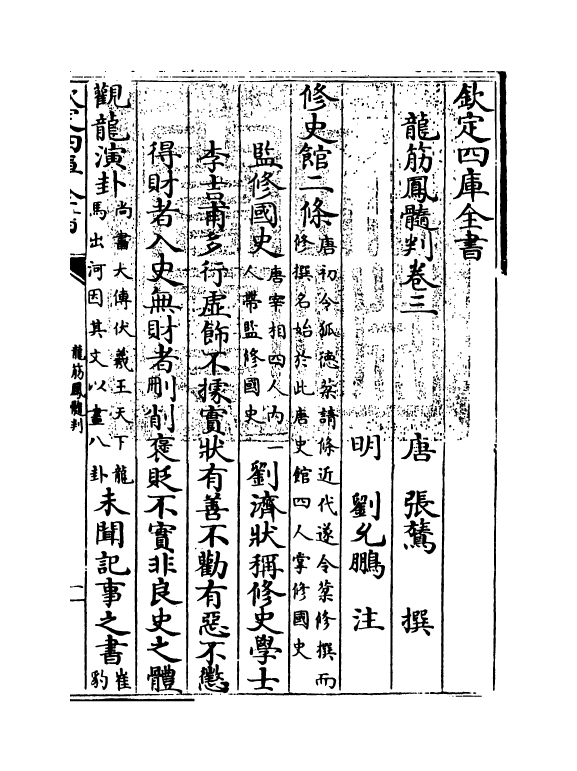 欽定四庫全書
龍筋鳳髓判卷三
唐 張鷟 撰
明 劉允鵬 注
修史館二條唐初令狐徳棻請修近代遂令棻修撰而修撰名始於此唐史館四人掌修國史
監修國史唐宰相四人内一人帶監修國史劉濟狀稱修史學士
李吉甫多行虚飾不據實狀有善不勸有惡不懲
得財者入史無財者刪削褒貶不實非良史之體
觀龍演卦尚書大傳伏羲王天下龍馬出河因其文以畫八卦未聞記事之書崔豹
龍筋鳳髓判